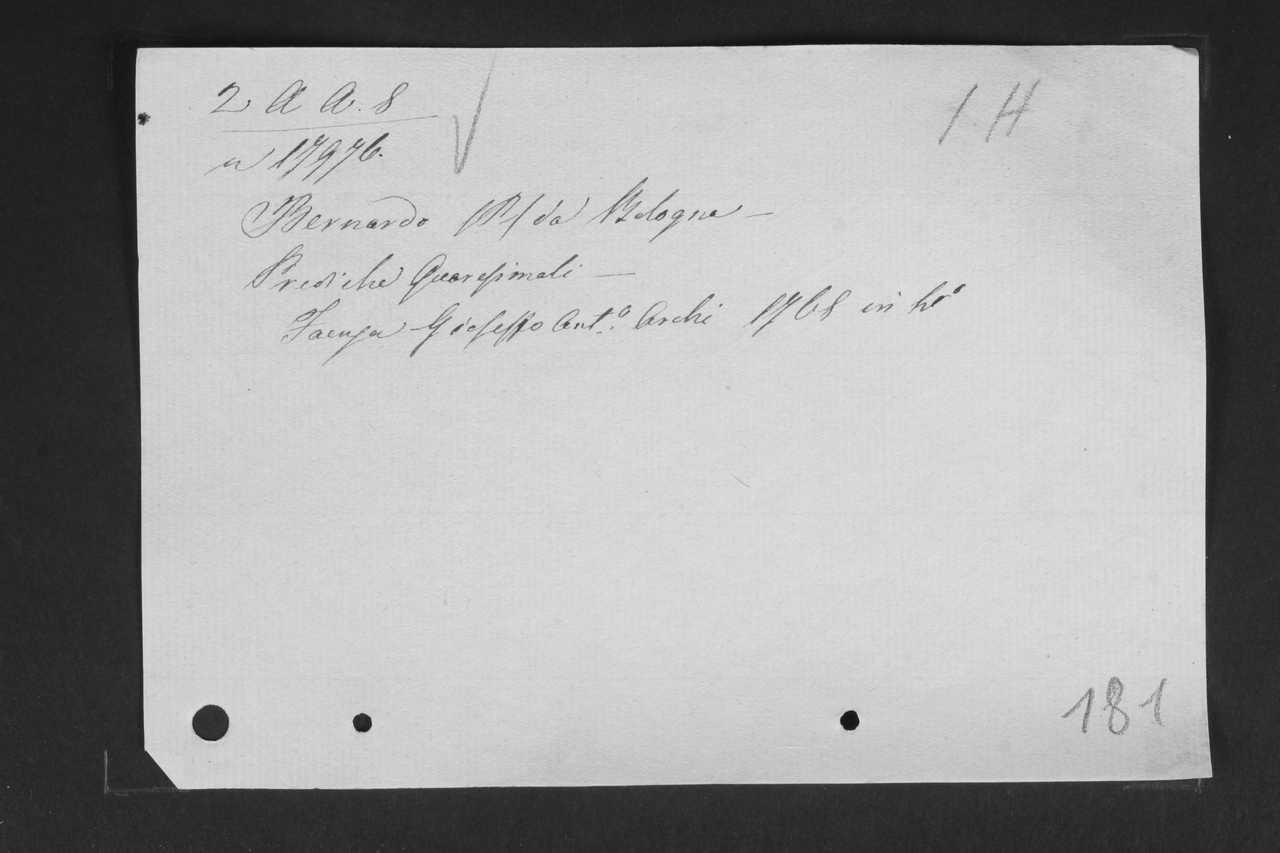 2 A A. 8
1 H
n 17976.
Bernardo (P) da Bologna —
Prediche Quaresimali —
Faenza Gioseffo Ant.º Archi 1768 in 4.º
181